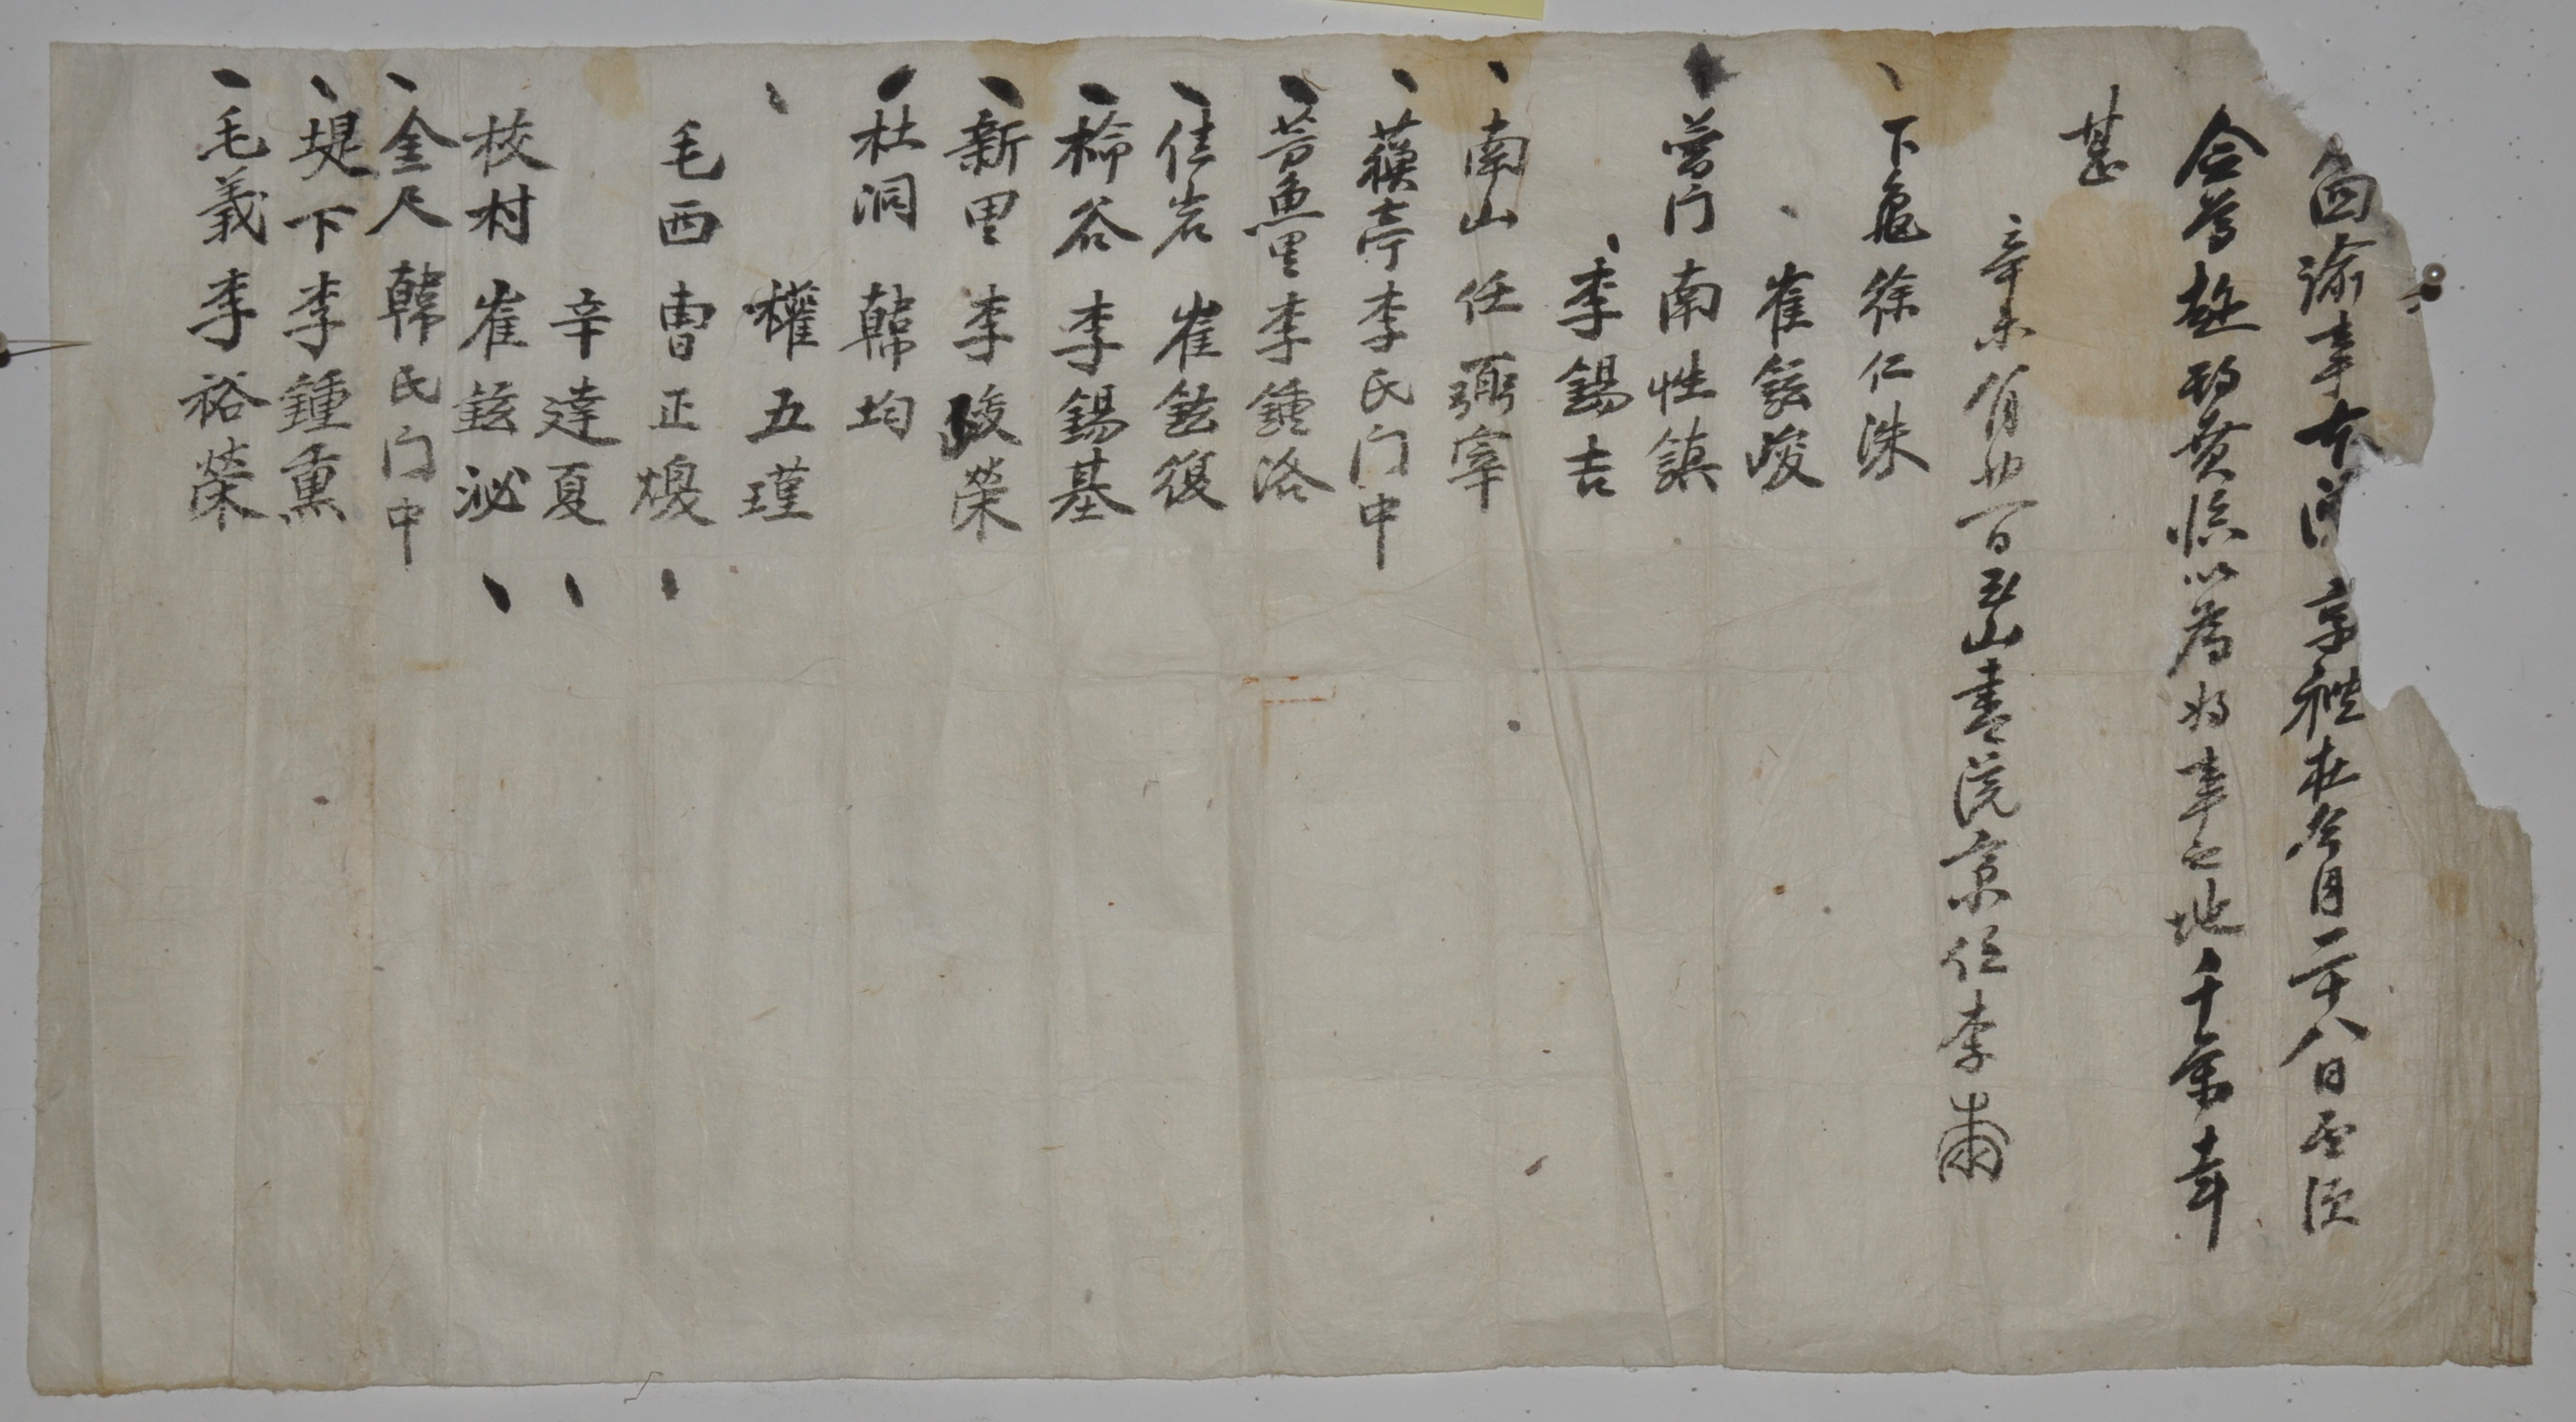 回諭事本院享禮在今月二十八日須
僉尊趁期賁臨以爲將事之地千萬幸
甚
辛未月廿一日山書院京任李
下龜徐仁洙
崔鉉峻
營门南性鎮
李錫吉
南山任弼宰
蘓亭李氏门中
芳魚里李鍾洛
佳岩崔鉉復
柃谷李錫基
新里李晙榮
杜洞韓均
權五瑾
毛西曺正煥
辛達夏
校村崔鉉泌
金尺韓氏门中
堤下李鍾熏
毛義李裕榮